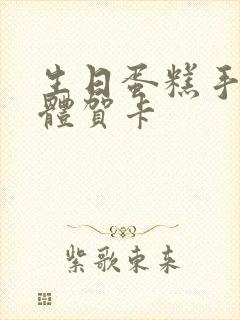 生日蛋糕手
體賀卡
紫歌東来